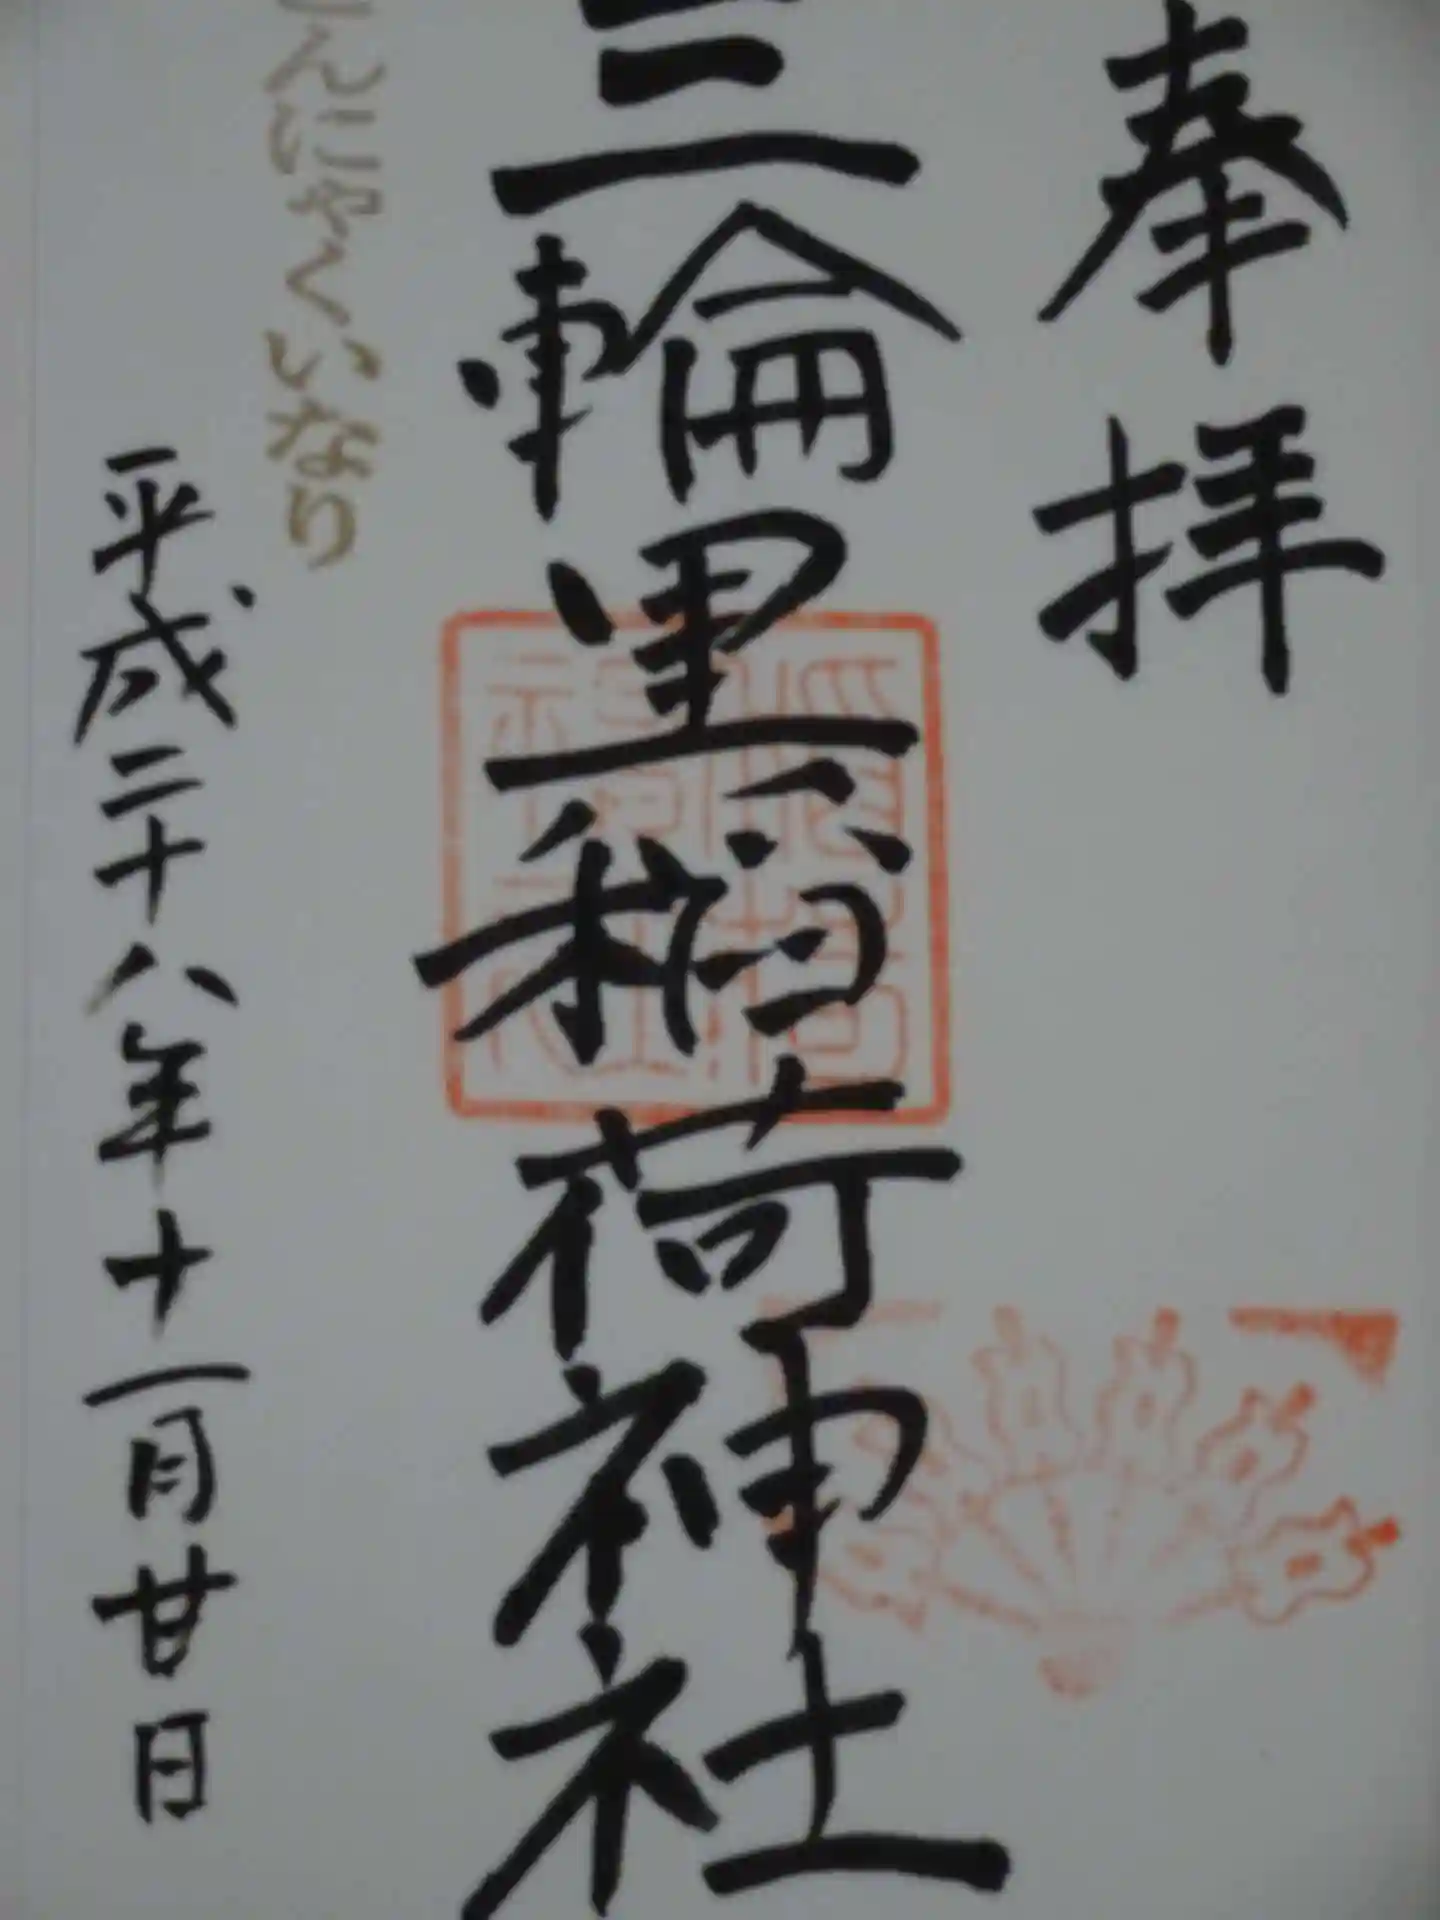 奉拝
三輪里稲荷神社
こんにゃくいなり
平成二十八年十一月廿日